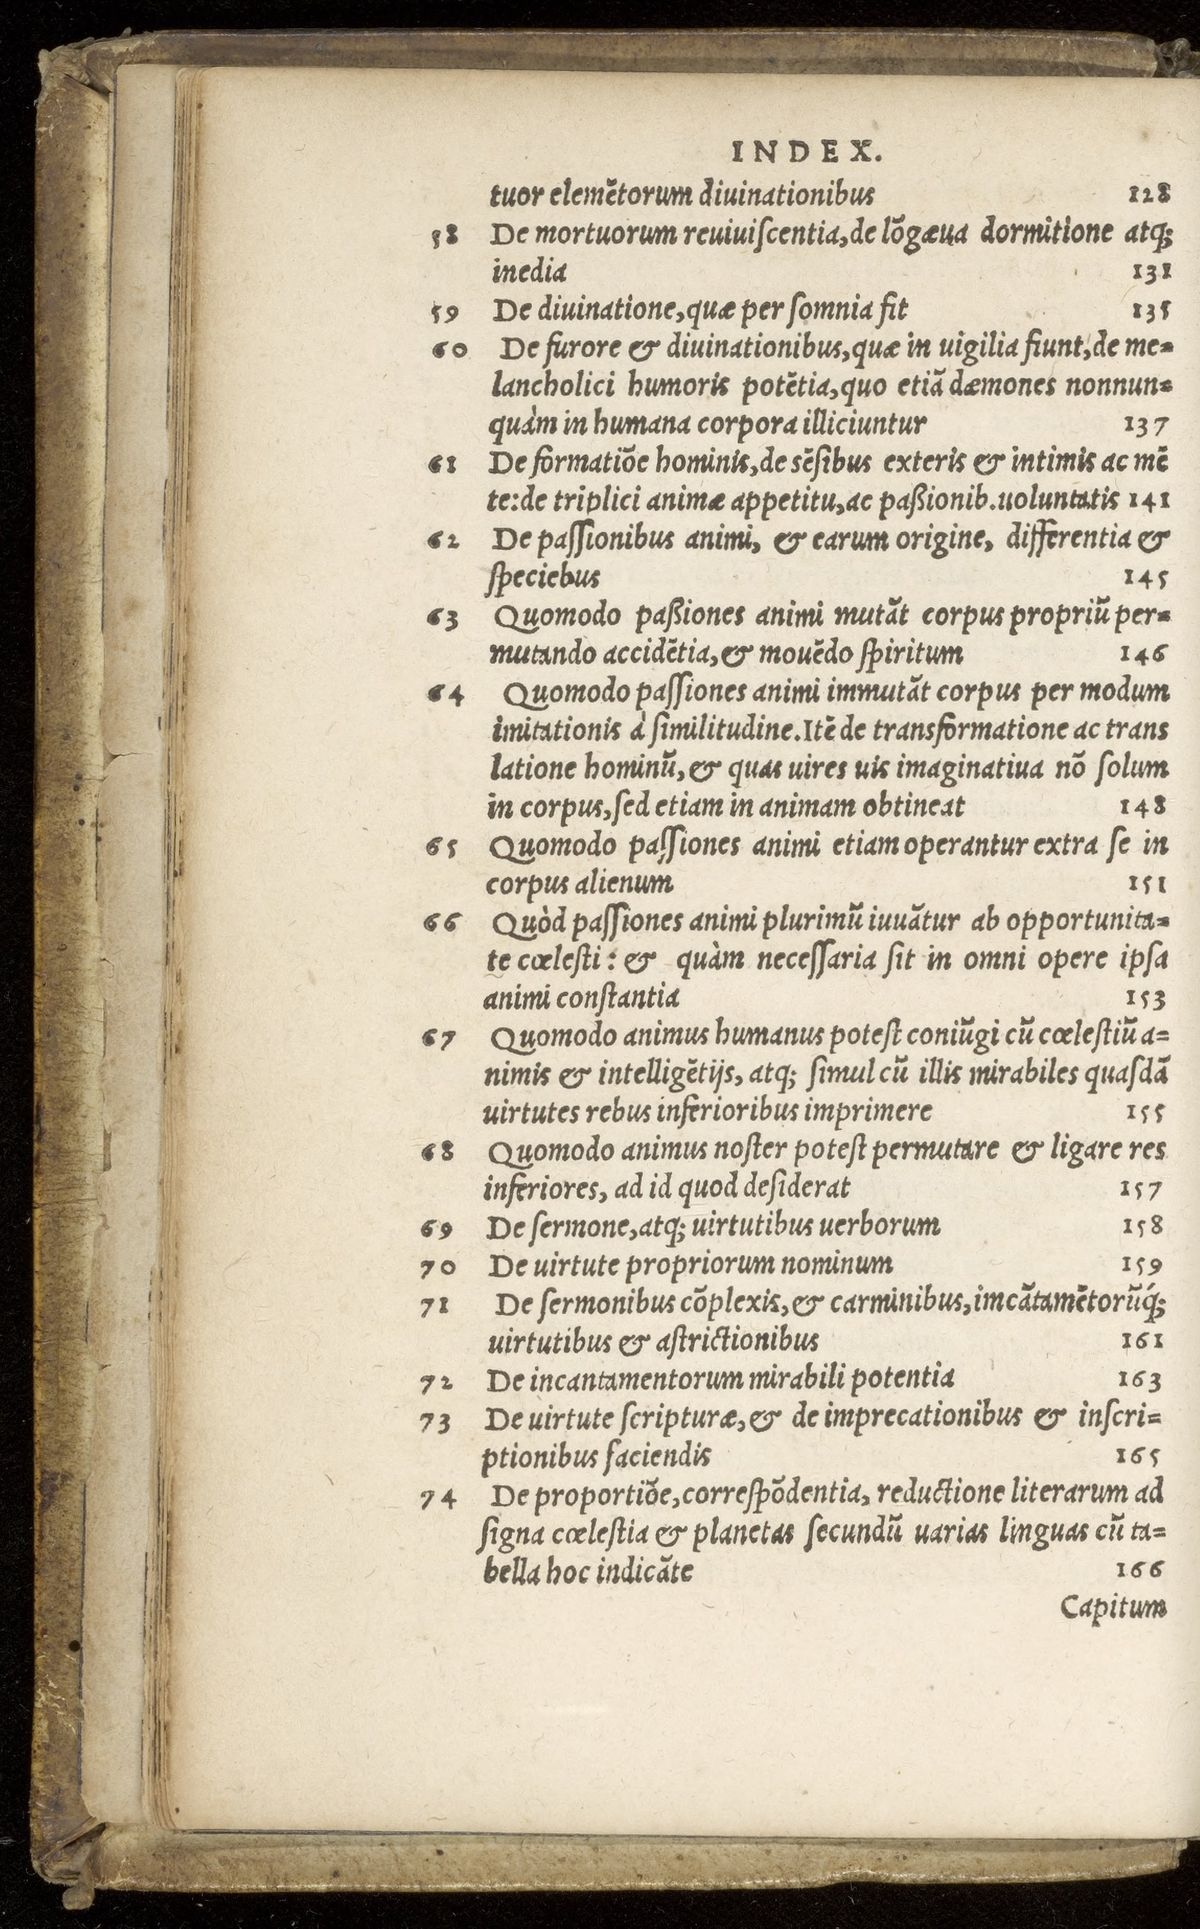 INDEX.
tuor elemētorum diuinationibus 128
58 De mortuorum reuiuiſcentia, de lōgæua dormitione atq;
inedia 131
59 De diuinatione, quæ per ſomnia fit 135
60 De furore & diuinationibus, quæ in uigilia fiunt, de me=
lancholici humoris potētia, quo etiā dæmones nonnun=
quàm in humana corpora illiciuntur 137
61 De formatiōe hominis, de sēſibus exteris & intimis ac mē
te: de triplici animæ appetitu, ac paßionib. uoluntatis 141
62 De paſſionibus animi, & earum origine, differentia &
ſpeciebus 145
63 Quomodo paßiones animi mutāt corpus propriū per=
mutando accidētia, & mouēdo ſpiritum 146
64 Quomodo paſſiones animi immutāt corpus per modum
imitationis à ſimilitudine. Itē de transformatione ac trans
latione hominū, & quas uires uis imaginatiua nō ſolum
in corpus, ſed etiam in animam obtineat 148
65 Quomodo paſſiones animi etiam operantur extra ſe in
corpus alienum 151
66 Quòd paſſiones animi plurimū iuuātur ab opportunita=
te cœleſti: & quàm neceſſaria ſit in omni opere ipſa
animi conſtantia 153
67 Quomodo animus humanus poteſt coniūgi cū cœleſtiū a=
nimis & intelligētijs, atq; ſimul cū illis mirabiles quaſdā
uirtutes rebus inferioribus imprimere 155
68 Quomodo animus noſter poteſt permutare & ligare res
inferiores, ad id quod deſiderat 157
69 De ſermone, atq; uirtutibus uerborum 158
70 De uirtute propriorum nominum 159
71 De ſermonibus cōplexis, & carminibus, imcātamētorūq́;
uirtutibus & aſtrictionibus 161
72 De incantamentorum mirabili potentia 163
73 De uirtute ſcripturæ, & de imprecationibus & inſcri=
ptionibus faciendis 165
74 De proportiōe, correſpōdentia, reductione literarum ad
ſigna cœleſtia & planetas ſecundū uarias linguas cū ta=
bella hoc indicāte 166
Capitum